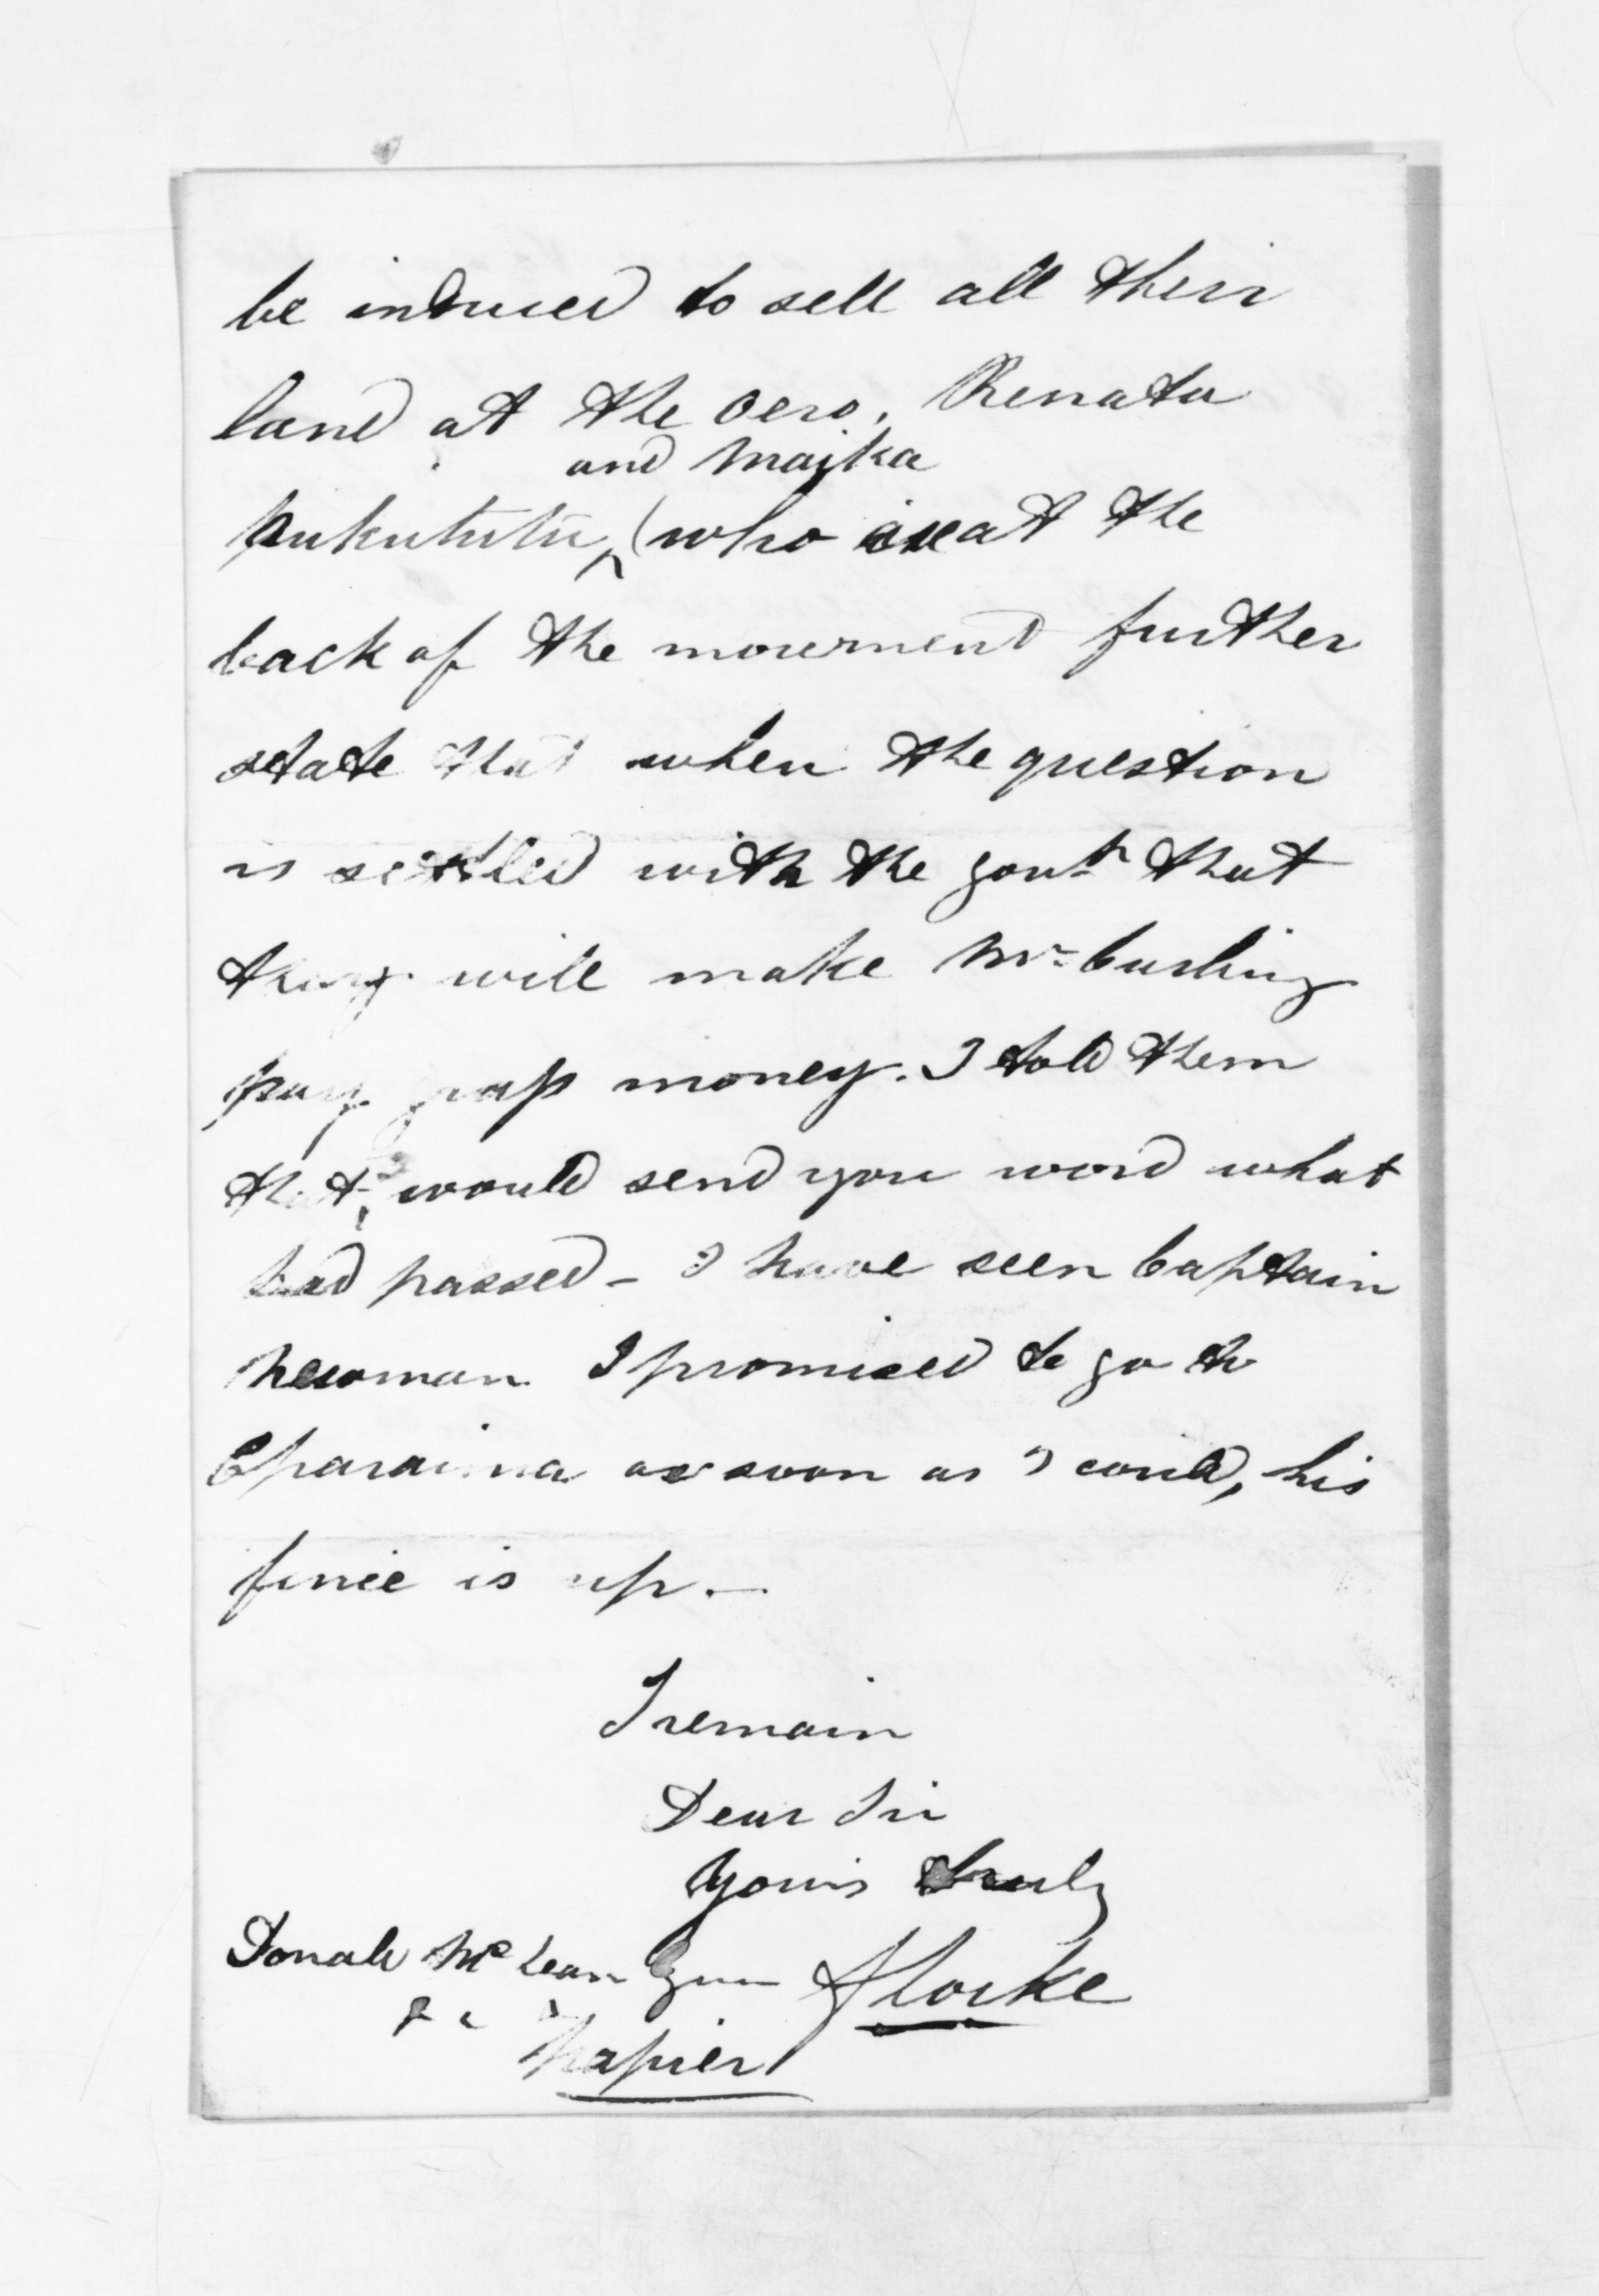 be induced to sell all their
land at the Oero, Renata
and Maika
Pukututu, (who are at the
back of the movement further
state that when the question
is settled with the Govt. that
they will make Mr Curling
pay grass money. I told them
that I would send you word what
had passed - I have seen Captain
Newman. I promised to go to
Eparaima as soon as I could, his
fence is up. -
I remain
Dear Sir
Yours truly
Donald McLean Esqre
S Locke
&c
Napier